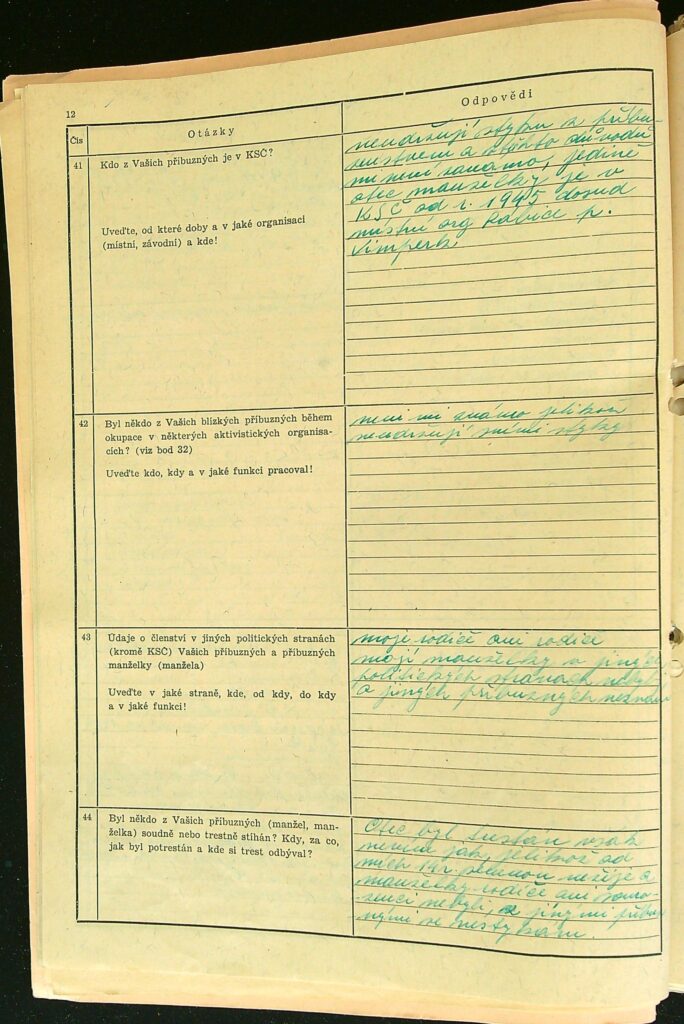 12
Čís
Otázky
Odpovědi
41
Kdo z Vašich příbuzných je v KSČ?
Uveďte, od které doby a v jaké organisaci
(místní, závodní) a kde!
neudržují styku z příbu-
zenstvem a z těchto důvodů
mi není známo, jedině
otec manželky je v
KSČ od r. 1945 dosud
místní org Rabice p.
Vimperk
42
Byl někdo z Vašich blízkých příbuzných během
okupace v některých aktivistických organisa-
cích? (viz bod 32)
Uveďte kdo, kdy a v jaké funkci pracoval!
není mi známo jelikož
neudržuji s nimi styky
43
Údaje o členství v jiných politických stranách
(kromě KSČ) Vašich příbuzných a příbuzných
manželky (manžela)
Uveďte v jaké straně, kde, od kdy, do kdy
a v jaké funkci!
moje rodiče ani rodiče
mojí manželky v jiných
politických stranách nebyli
o jiných příbuzných neznám
44
Byl někdo z Vašich příbuzných (manžel, man-
želka) soudně nebo trestně stíhán? Kdy, za co,
jak byl potrestán a kde si trest odbýval?
Otec byl trestán však
nevím jak, jelikož od
mich 14 r. semnou nežije a
manželky rodiče ani souro-
zenci nebyli, z jinými příbuz
nými se nestýkám.